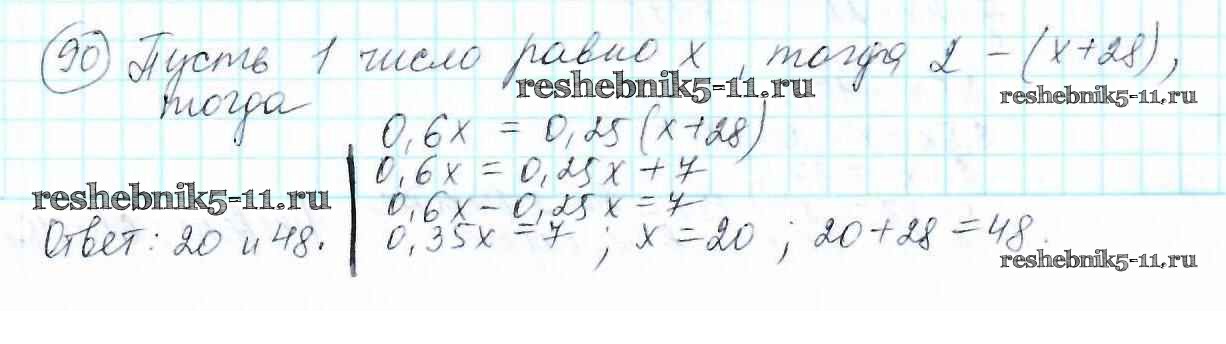 90 Пусть 1 число равно x, тогда 2 – (x+28),
reshebnik5-11.ru
reshebnik5-11.ru
тогда
0,6x = 0,25(x+28)
0,6x = 0,25x + 7
reshebnik5-11.ru
0,6x – 0,25x = 7
Ответ: 20 и 48.
0,35x = 7 ; x = 20 ; 20+28 = 48.
reshebnik5-11.ru